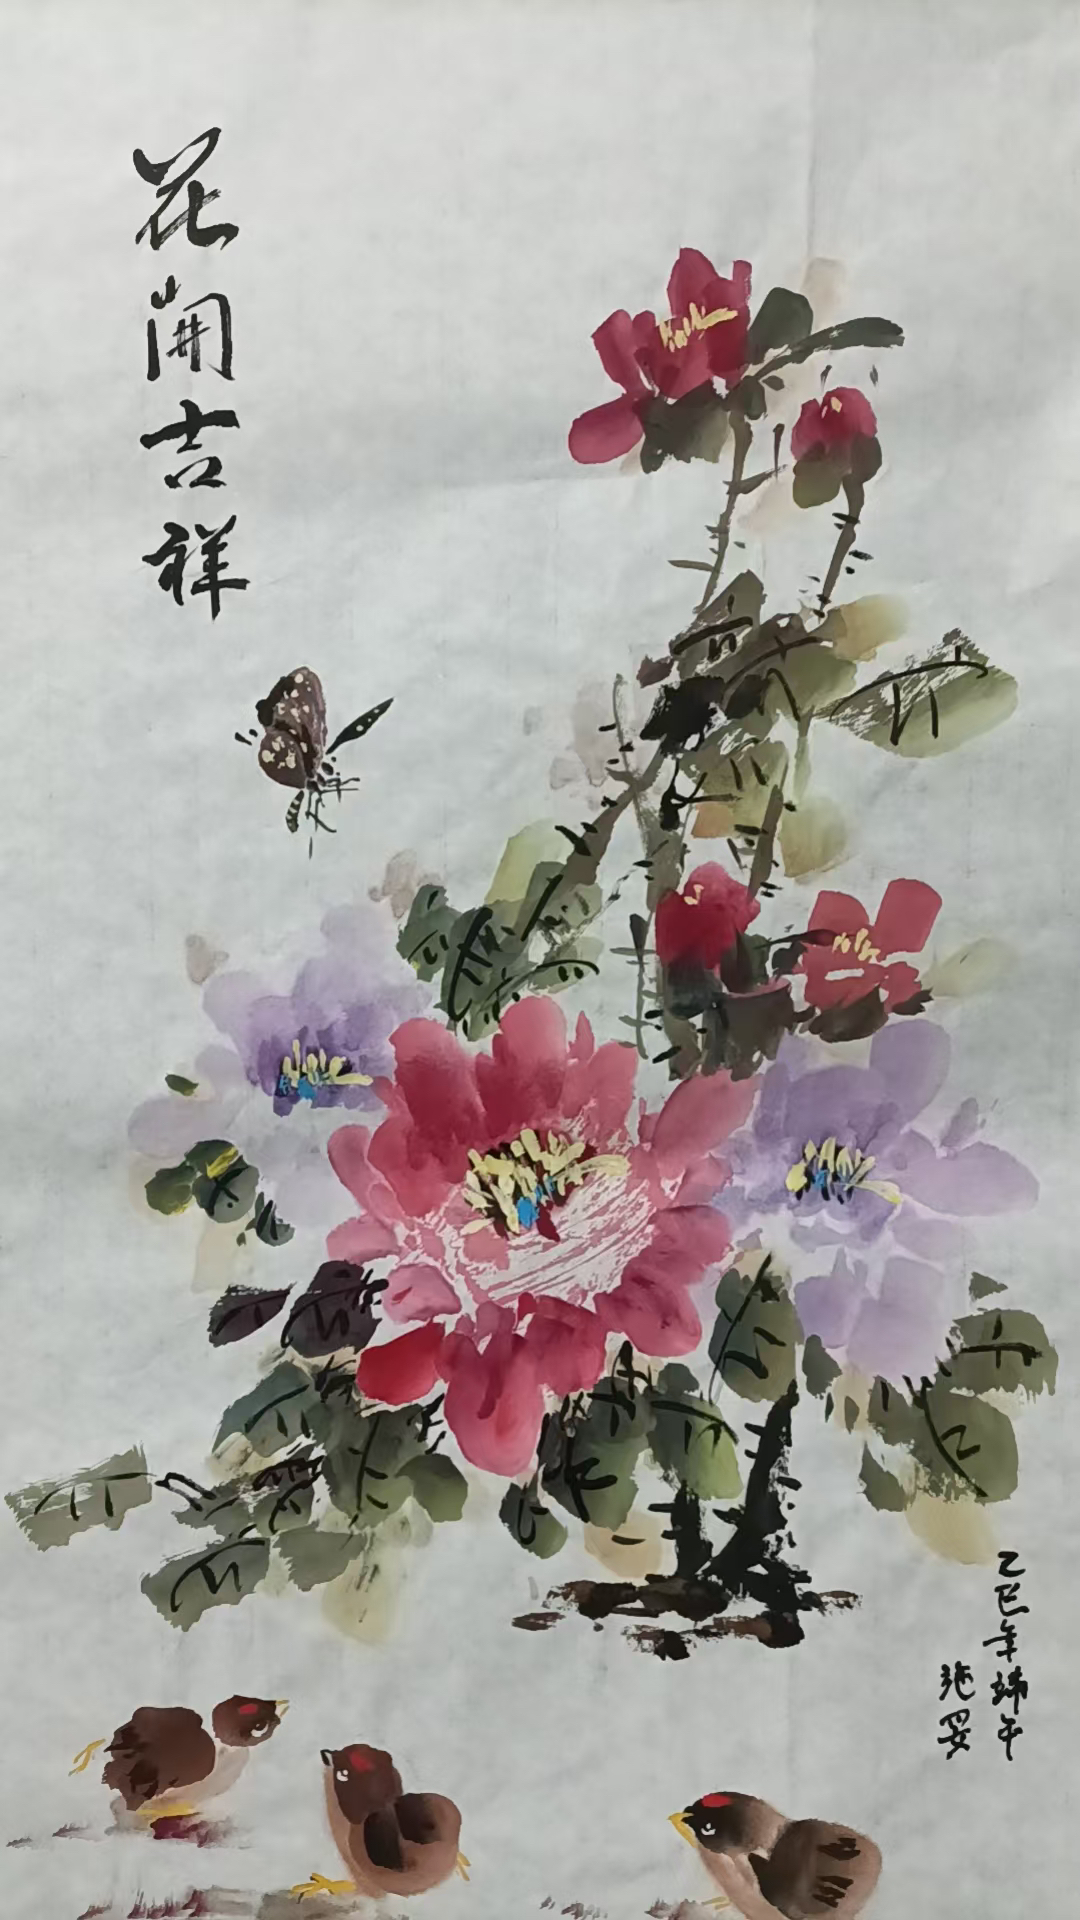 花開吉祥
乙巳年端午